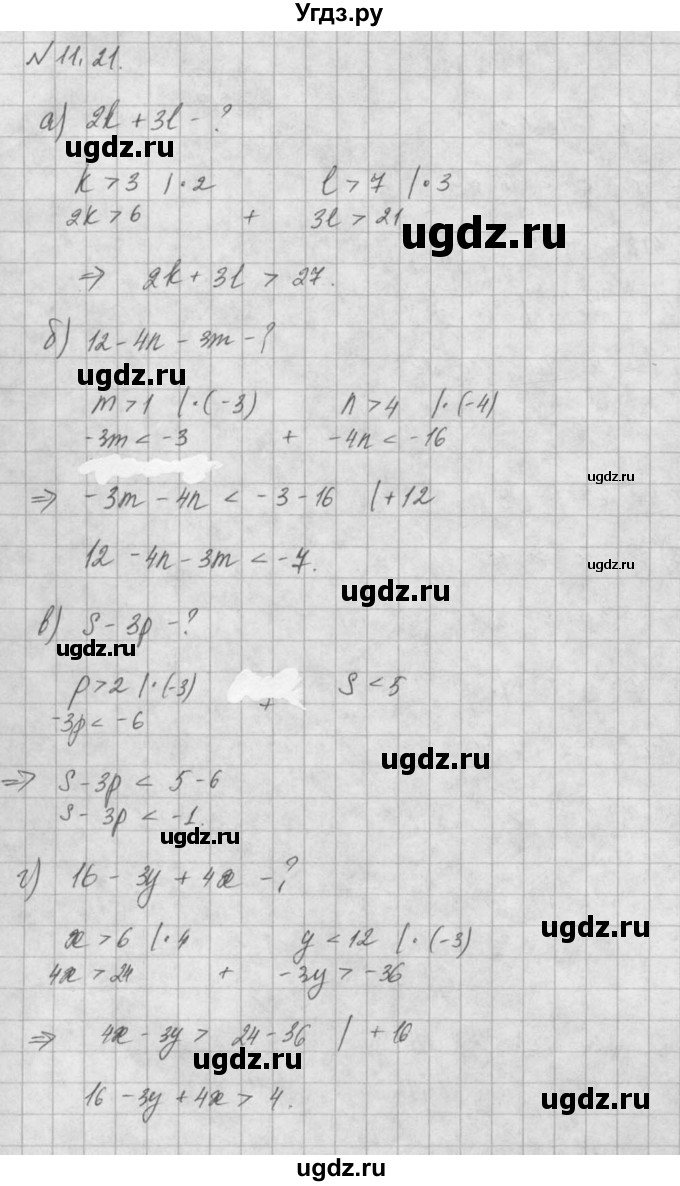 Угдз.ру
№ 11.21.
а) 2k + 3l - ?
ugdz.ru
k > 3 | · 2 l > 7 | · 3
2k > 6 + 3l > 21
ugdz.ru
⇒ 2k + 3l > 27.
б) 12 - 4n - 3m - ?
ugdz.ru
m > 1 | · (-3) n > 4 | · (-4)
-3m < -3 + -4n < -16
ugdz.ru
⇒ -3m - 4n < -3 - 16 | + 12
12 - 4n - 3m < -7.
ugdz.ru
ugdz.ru
в) S - 3p - ?
ugdz.ru
p > 2 | · (-3) S < 5
-3p < -6 +
ugdz.ru
⇒ S - 3p < 5 - 6
S - 3p < -1.
ugdz.ru
г) 16 - 3y + 4x - ?
ugdz.ru
x > 6 | · 4 y < 12 | · (-3)
4x > 24 + -3y > -36
⇒ 4x - 3y > 24 - 36 | + 16
ugdz.ru
16 - 3y + 4x > 4.
ugdz.ru
ugdz.ru